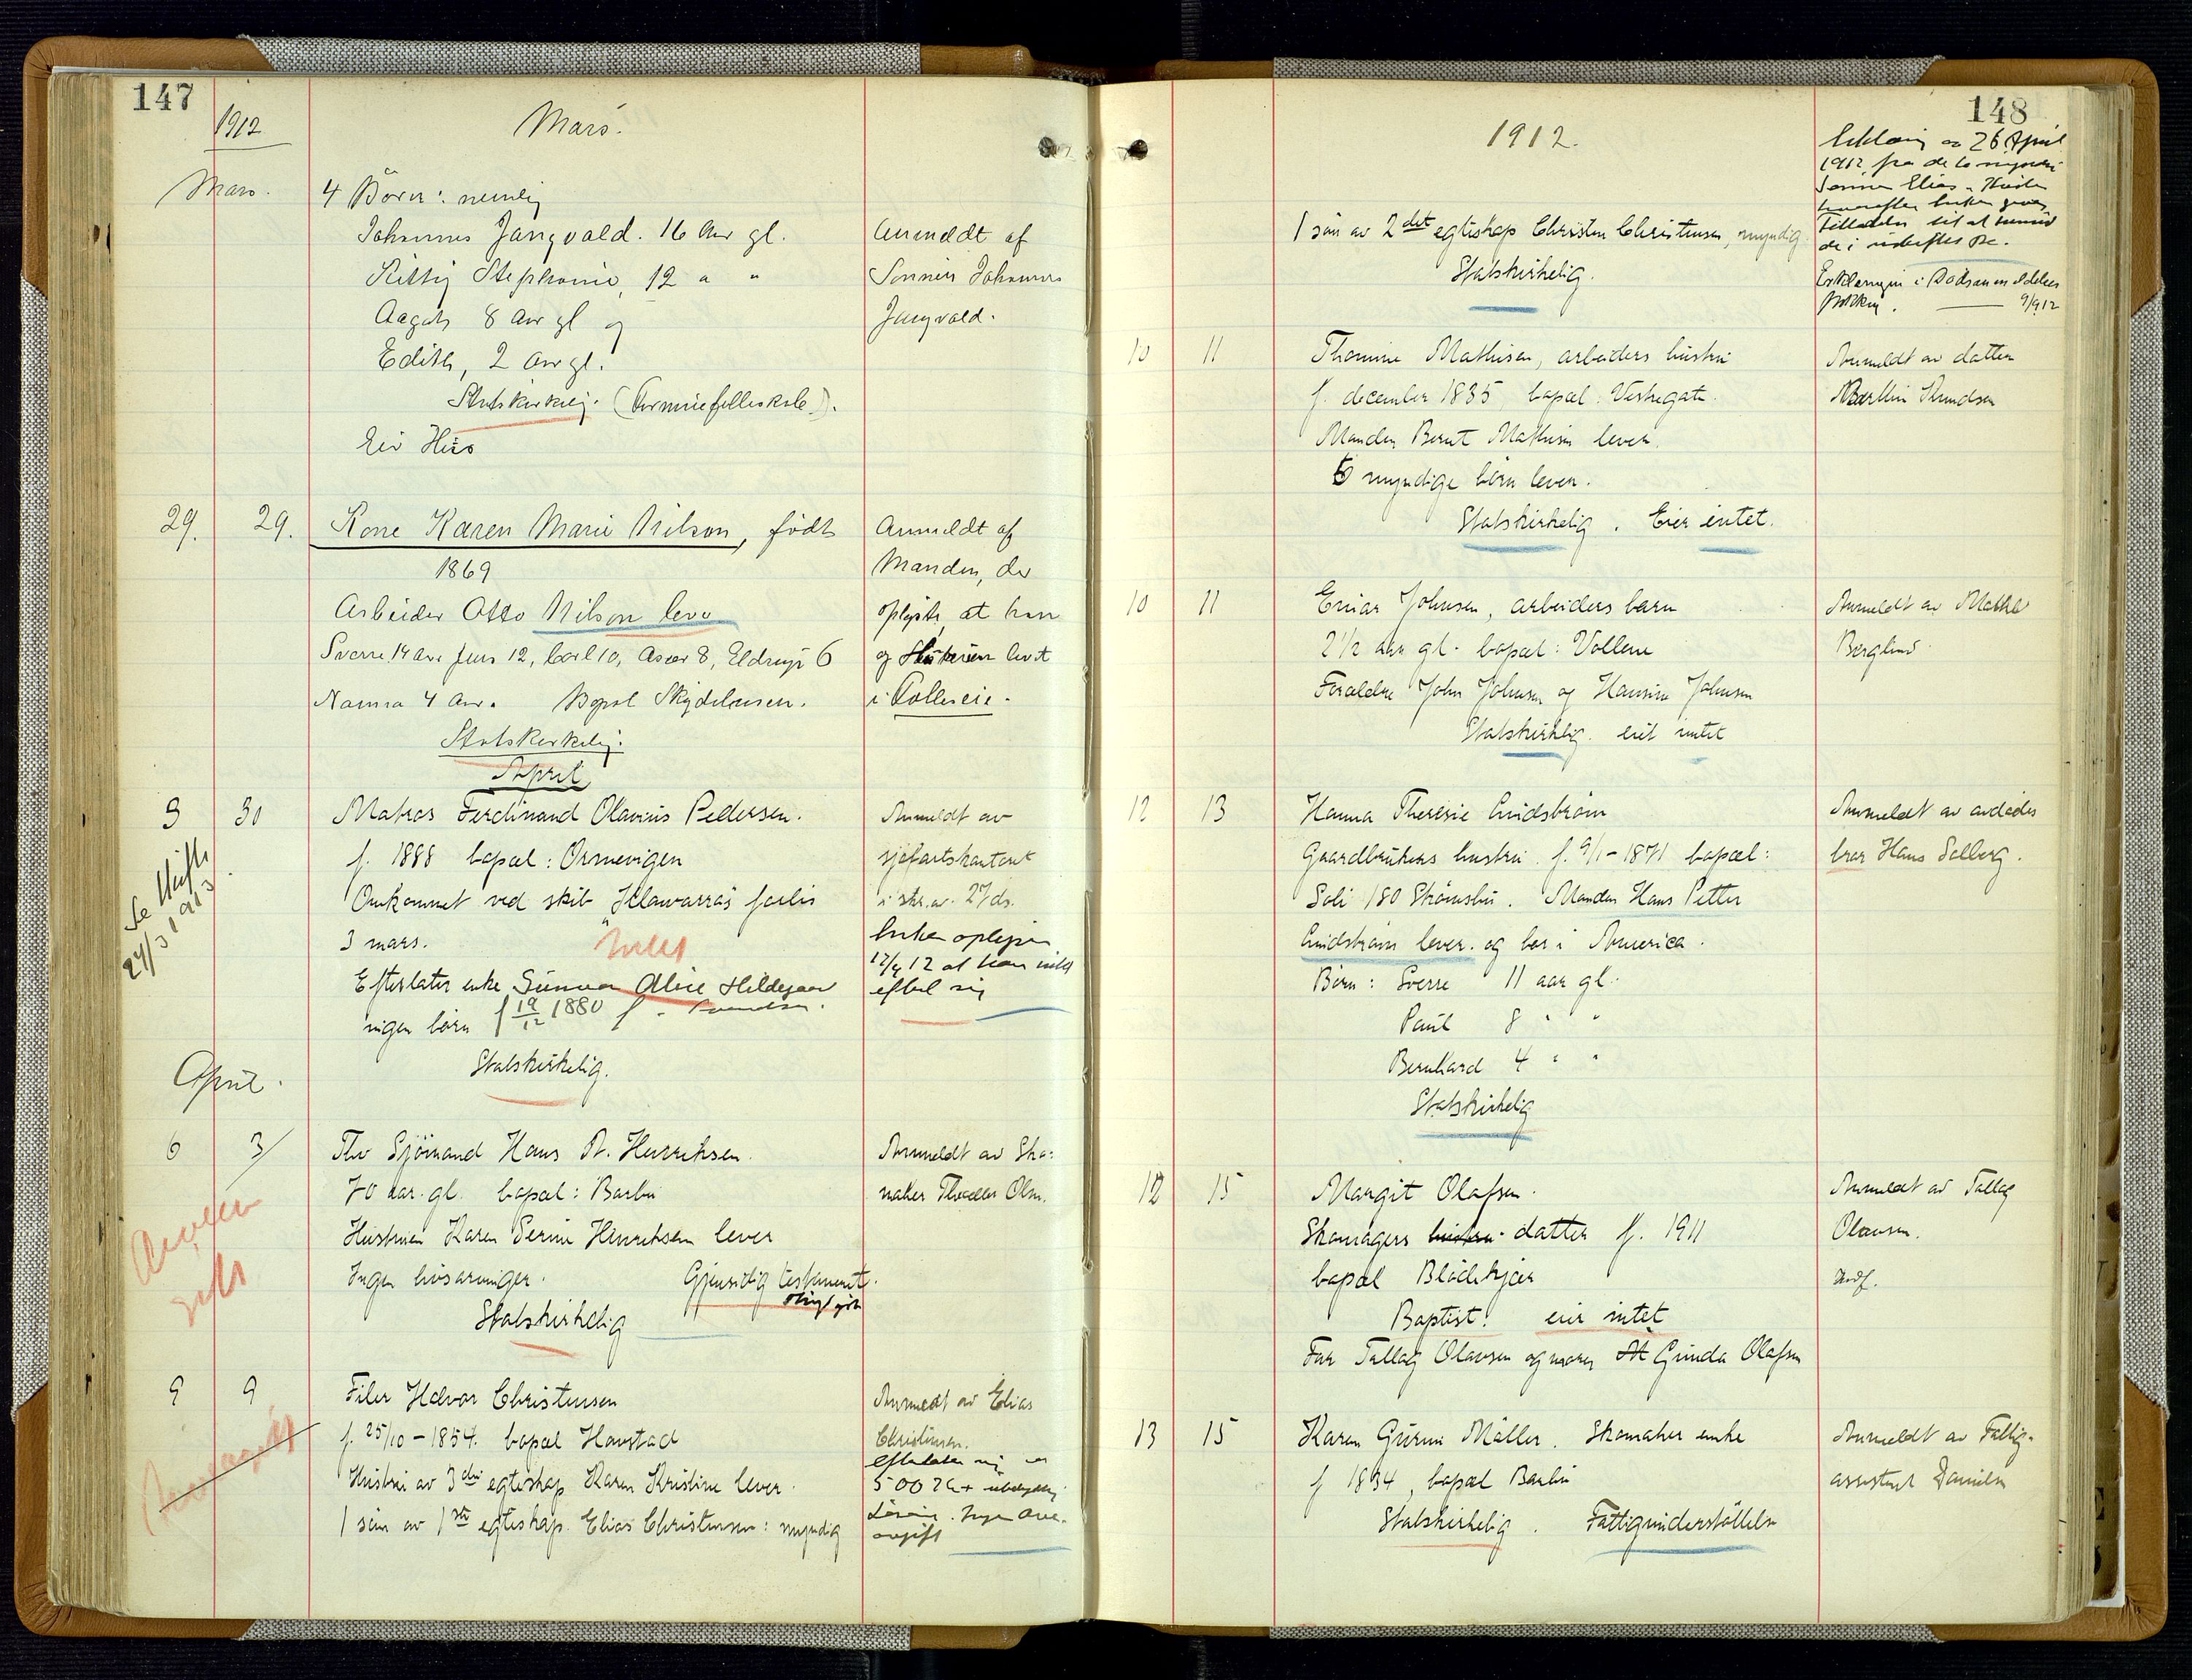 147
1912
Mars.
Mars.
4 Børn: nemlig
Johannes Jangvald. 16 Aar gl.
Kitty Stephanie, 12 " "
Aagot 8 Aar gl og
Edith, 2 Aar gl.
Statskirkelig.
Eier Hus
Anmeldt af
Sønnen Johannes
Jangvald.
29. 29. Kone Karen Marie Nilson, født
1869
Arbeider Otto Nilson lever
Sverre 14 Aar Jens 12, Carl 10, Oscar 8, 6
Nanna 4 Aar. Bopæl Skytebusen.
Statskirkelig.
Anmeldt af
Manden, der
oplyste, at han
og Hustruen levet
i Fælleseie.
April
3 30 Matros Ferdinand Olavius Pedersen.
f. 1888 bopæl: Ormevigen
Omkommet ved skib "Illawarras" forlis
3 mars.
Efterlater enke Gunvor Alvie Hildegaar
ingen børn f 19/12 1880
Statskirkelig.
Anmeldt av
sjøfartskontoret
i skr. av. 27 ds.
Enken oplyser
12/4 12 at han intet
efterl sig
Se Skifte
24/3 1913
intet
April.
6 3/ Fhv Sjømand Hans P. Henriksen.
70 aar. gl. bopæl: Barbu
Hustruen Karen Serine Henriksen lever
Ingen livsarvinger. Gjensidig testament.
Statskirkelig
Anmeldt av Sko-
maker Olsn.
9 9 Filer Halvor Christensen
f. 25/10 - 1854. bopæl Havstad
Hustru av 3die egteskap Karen Kristine lever.
1 søn av 1ste egteskap. Elias Christensen: myndig
Anmeldt av Elias
Christensen.
Efterlater sig
500 Kr
Løsøre. Ingen Arve-
avgift
148
1912.
1 søn av 2det egteskap Christen Christensen, myndig.
Statskirkelig.
Erklæring av 26 April
1912 fra de to myndige
Sønner Elias
hvorefter Enken gives
Tilladelse til at sidde
de i uskiftet Bo.
Erklæringen i Dødsanmeldelses
9/9 12
10 11 Thomine Mathisen, arbeiders hustru
f. december 1835 bopæl: Vestregate.
Manden Bernt Mathisen lever.
6 myndige børn lever.
Statskirkelig. Eier intet.
Anmeldt av datter
Berthin Knudsen
10 11 Einar Johnsen, arbeiders barn
2 1/2 aar gl. bopæl: Vollene
Forældre John Johnsen og Hansine Johnsen
Statskirkelig. eiet intet
Anmeldt av Mathe
Berglund
12 13 Hanna Theresie Lindstrøm
Gaardbrukers hustru. f. 9/1 - 1871 bopæl:
Soli 180 Strømsbu. Manden Hans Petter
Lindstrøm lever. og bor i America.
Børn: Sverre 11 aar gl.
Paul 8 " "
Bernhard 4 " "
Statskirkelig
Anmeldt av avdødes
bror Hans Solberg.
12 15 Margit Olafsen.
Skomagers hustru datter f. 1911
bopæl Blødekjær
Baptist! eier intet
Far Tallag Olavsen og moren M Gunda Olafsen
Anmeldt av Tallag
Olavsen.
13 15 Karen Gurine Møller. Skomaker enke
f 1834, bopæl Barbu
Statskirkelig. Fattigunderstøttelse
Anmeldt av Fattig-
assistent Danielsen